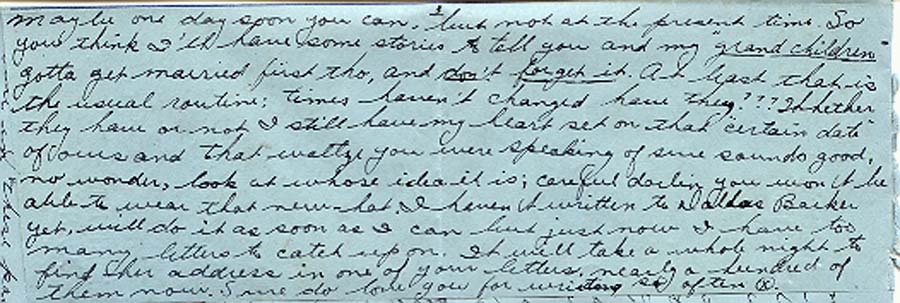 maybe one day soon you can, but not at the present time. So
you think I'll have some stories to tell you and my "grand children"
gotta get married first tho, and don't forget it. At least that is
the usual routine; times haven't changed have they??? Whether
they have or not I still have my heart set on that "certain date"
of ours and that waltze you were speaking of sure sounds good,
no wonder, look at whose idea it is; careful darlin you won't be
able to wear that new hat. I haven't written to Dallas Barker
yet, will do it as soon as I can but just now I have too
many letters to catch up on. It will take a whole night to
find her address in one of your letters, nearly a hundred of
them now. Sure do love you for writing so often